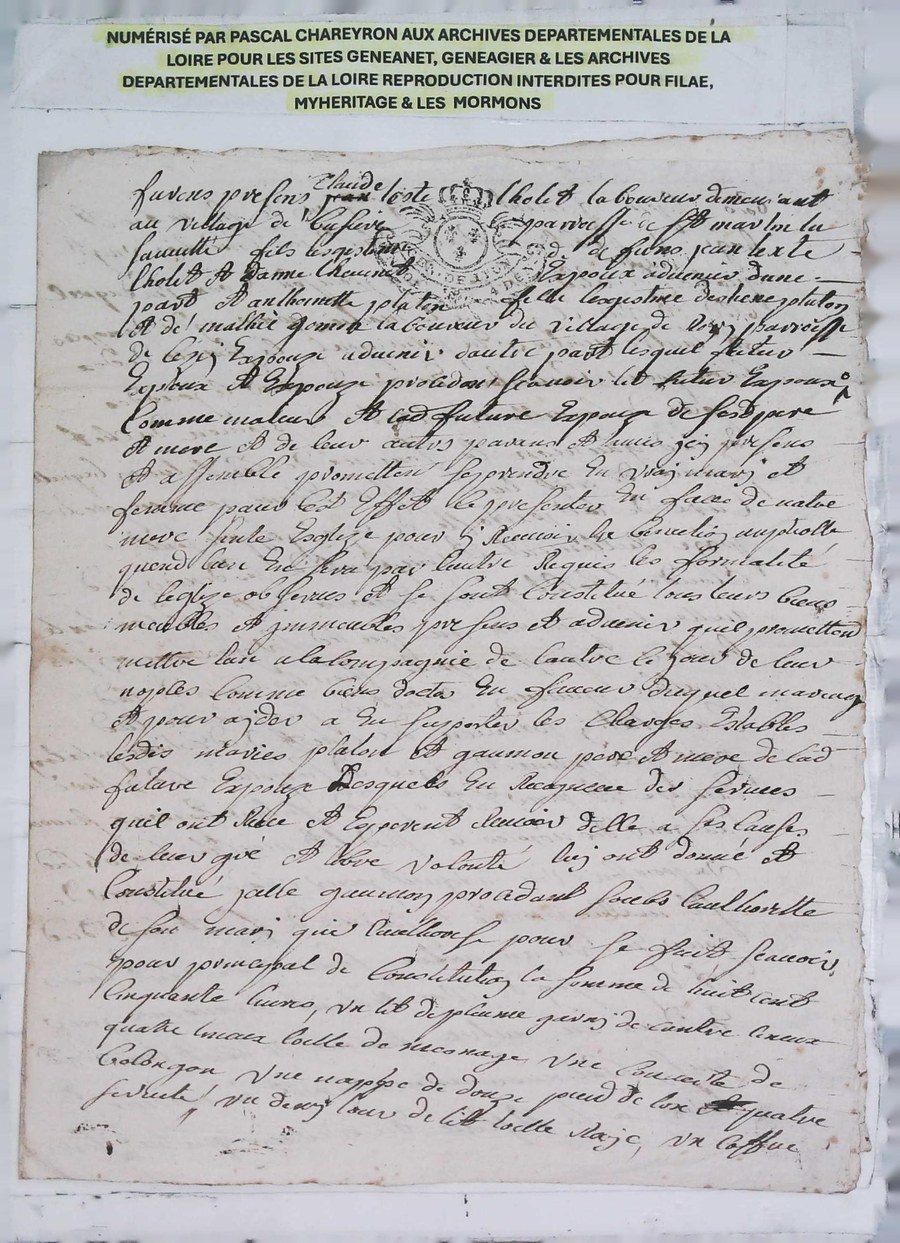 NUMÉRISÉ PAR PASCAL CHAREYRON AUX ARCHIVES DEPARTEMENTALES DE LA
LOIRE POUR LES SITES GENEANET, GENEAGIER & LES ARCHIVES
DEPARTEMENTALES DE LA LOIRE REPRODUCTION INTERDITES POUR FILAE,
MYHERITAGE & LES MORMONS
furens presens Claude lholet laboureur demeurant
au village de parroisse de St martin la
fils legistime de
lholet Et Expoux aduenir dune
part Et anthoinette platon fille legistime destiene platon
Et de laboureur du village de parroisse
de Expouze aduenir dautre part lesquel futur
Expoux Et Expouze procedans scauoir led futur Expoux
Comme maieur Et lad future Expouze de sesd pere
Et mere Et de leur autres parens Et amis presens
Et assemblé promettent se prendre En vray mary Et
femme pour cet Effet se presenter En face de notre
mere Esglize pour y Receuoir la
quend lun En sera par lautre Requis les formalité
de leglize obserues Et se sont Constitué tous leurs biens
meubles Et jmmeubles presens Et aduenir quil promettent
mettre lun a la Compagnie de lautre le jour de leur
nopses Comme biens En faueur duquel mariage
Et pour ayder a En supporter les Charges Establis
lesdis mariés platon Et gaumon pere Et mere de lad
future Expouze Lesquels En des seruices
quil ont Et Esperent Receuoir delle a
de leur gré Et volonté luy ont donné Et
Constitué gaumon procedant soubs lauthorette
de son mary qui lauthorise pour se fait scauoir,
pour principal de Constitution la somme de huit cent
Cinquante liures, vn lit de plume garny de
quatre toille de menage vne Couuerte de
vne nappe de douze pied de lon quatre
seruieté, vn tour de lit toille vn Coffre